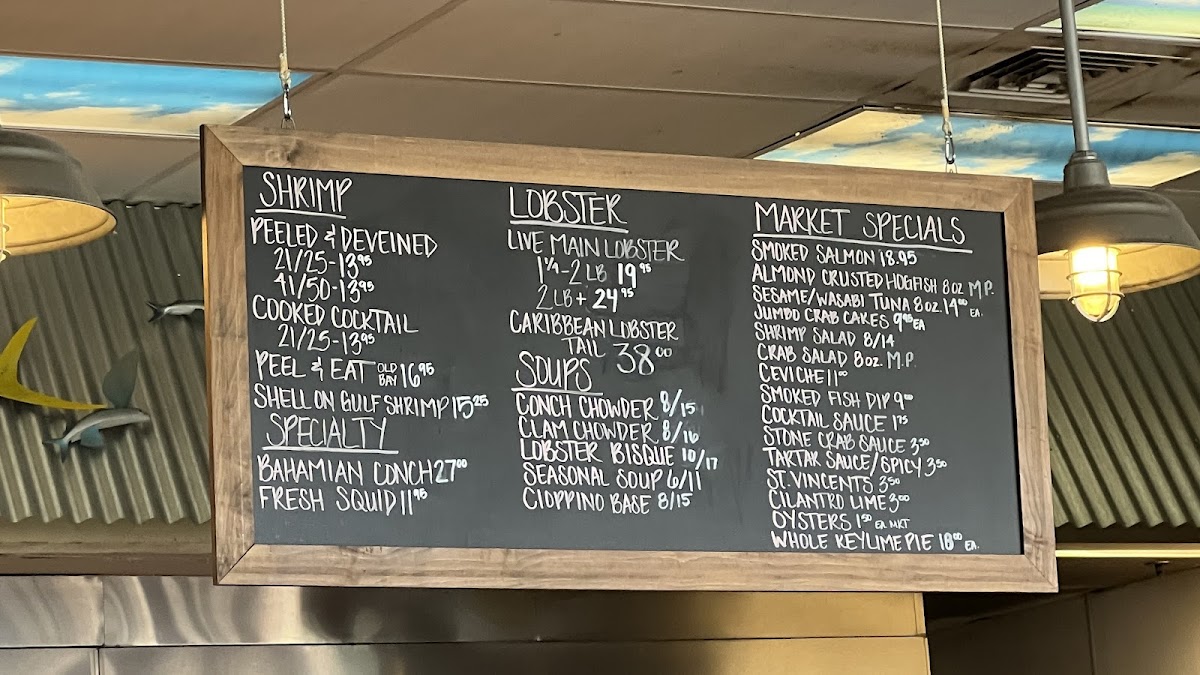 SHRIMP
PEELED & DEVEINED
21/25-13⁹⁵
41/50-13⁹⁵
COOKED COCKTAIL
21/25-13⁹⁵
PEEL & EAT OLD BAY 16⁹⁵
SHELL ON GULF SHRIMP 15²⁵
SPECIALTY
BAHAMIAN CONCH 27⁰⁰
FRESH SQUID 11⁹⁵
LOBSTER
LIVE MAIN LOBSTER
1¼-2 LB 19⁹⁵
2 LB+ 24⁹⁵
CARIBBEAN LOBSTER
TAIL 38⁰⁰
SOUPS
CONCH CHOWDER 8/15
CLAM CHOWDER 8/16
LOBSTER BISQUE 10/17
SEASONAL SOUP 6/11
CIOPPINO BASE 8/15
MARKET SPECIALS
SMOKED SALMON 18.95
ALMOND CRUSTED HOGFISH 8 OZ M.P.
SESAME/WASABI TUNA 8 OZ. 14⁰⁰ EA.
JUMBO CRAB CAKES 9⁹⁵ EA
SHRIMP SALAD 8/14
CRAB SALAD 8 OZ. M.P.
CEVICHE 11⁰⁰
SMOKED FISH DIP 9⁰⁰
COCKTAIL SAUCE 1⁷⁵
STONE CRAB SAUCE 3⁵⁰
TARTAR SAUCE/SPICY 3⁵⁰
ST. VINCENTS 3⁵⁰
CILANTRO LIME 3⁰⁰
OYSTERS 1⁵⁰ EA MKT
WHOLE KEYLIME PIE 18⁰⁰ EA.